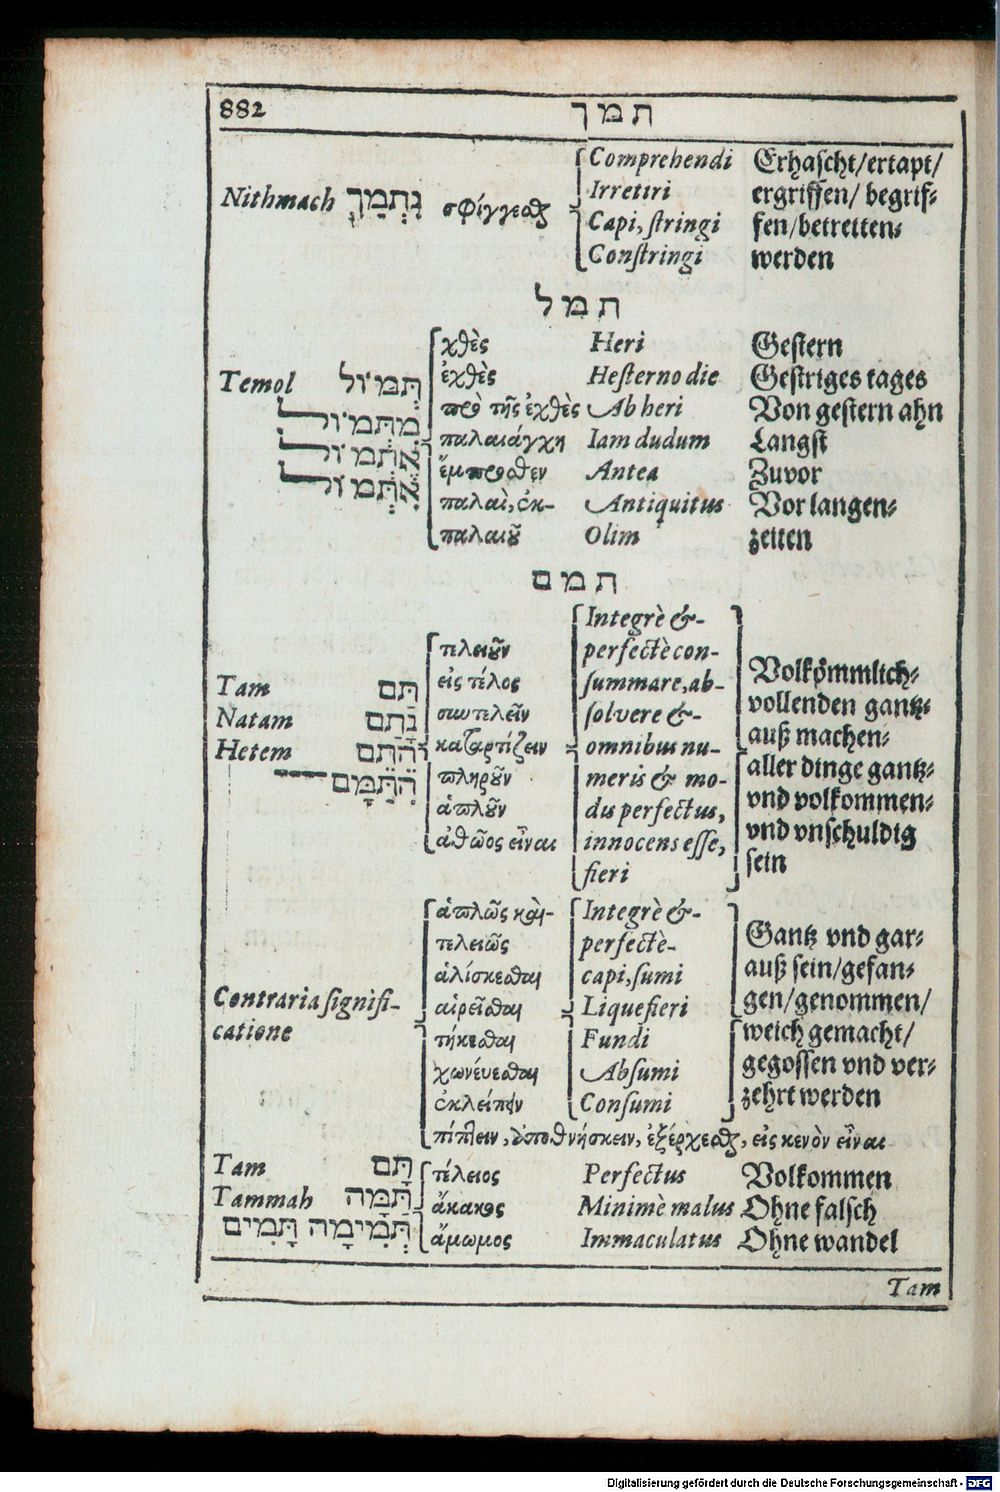 882 תמך
Comprehendi Erhascht/ertapt/
Irretiri ergriffen/ begrif-
Nithmach נִתְמַךְ σφίγγεσθαι
Capi, stringi fen/betretten-
Constringi werden
תמל
χθὲς Heri Gestern
Temol תְּמוֹל ἐχθὲς Hesterno die Gestriges tages
מִתְּמוֹל πρὸ τῆς ἐχθὲς Ab heri Von gestern ahn
אֶתְמוֹל παλαιάγχη Iam dudum Langst
אִתְּמוֹל ἔμπροσθεν Antea Zuvor
παλαὶ, ἐκ- Antiquitus Vor langen-
παλαιοῦ Olim zeiten
תמם
Integrè &-
τελειοῦν perfectè con-
Tam תַּם εἰς τέλος summare, ab- Volkömmlich-
Natam נָתַם συντελεῖν solvere &- vollenden gantz-
Hetem הֵתַם καταρτίζειν omnibus nu- auß machen-
הִתַּמָּם πληροῦν meris & mo- aller dinge gantz-
ἁπλοῦν dus perfectus, vnd volkommen-
ἀθῶος εἶναι innocens esse, vnd vnschuldig
fieri sein
ἁπλῶς καὶ- Integrè &-
τελειῶς perfectè- Gantz vnd gar-
ἁλίσκεσθαι capi, sumi auß sein/gefan-
Contraria signifi- αἱρεῖσθαι Liquefieri gen/genommen/
catione τήκεσθαι Fundi weich gemacht/
χωνέυεσθαι Absumi gegossen vnd ver-
ἐκλείπειν Consumi zehrt werden
πίπτειν, ἀποθνήσκειν, ἐξέρχεσθαι, εἰς κενὸν εἶναι
Tam תָּם τέλειος Perfectus Volkommen
Tammah תַּמָּה ἄκακος Minimè malus Ohne falsch
תְּמִימָה תָּמִים ἄμωμος Immaculatus Ohne wandel
Tam
Digitalisierung gefördert durch die Deutsche Forschungsgemeinschaft - DFG